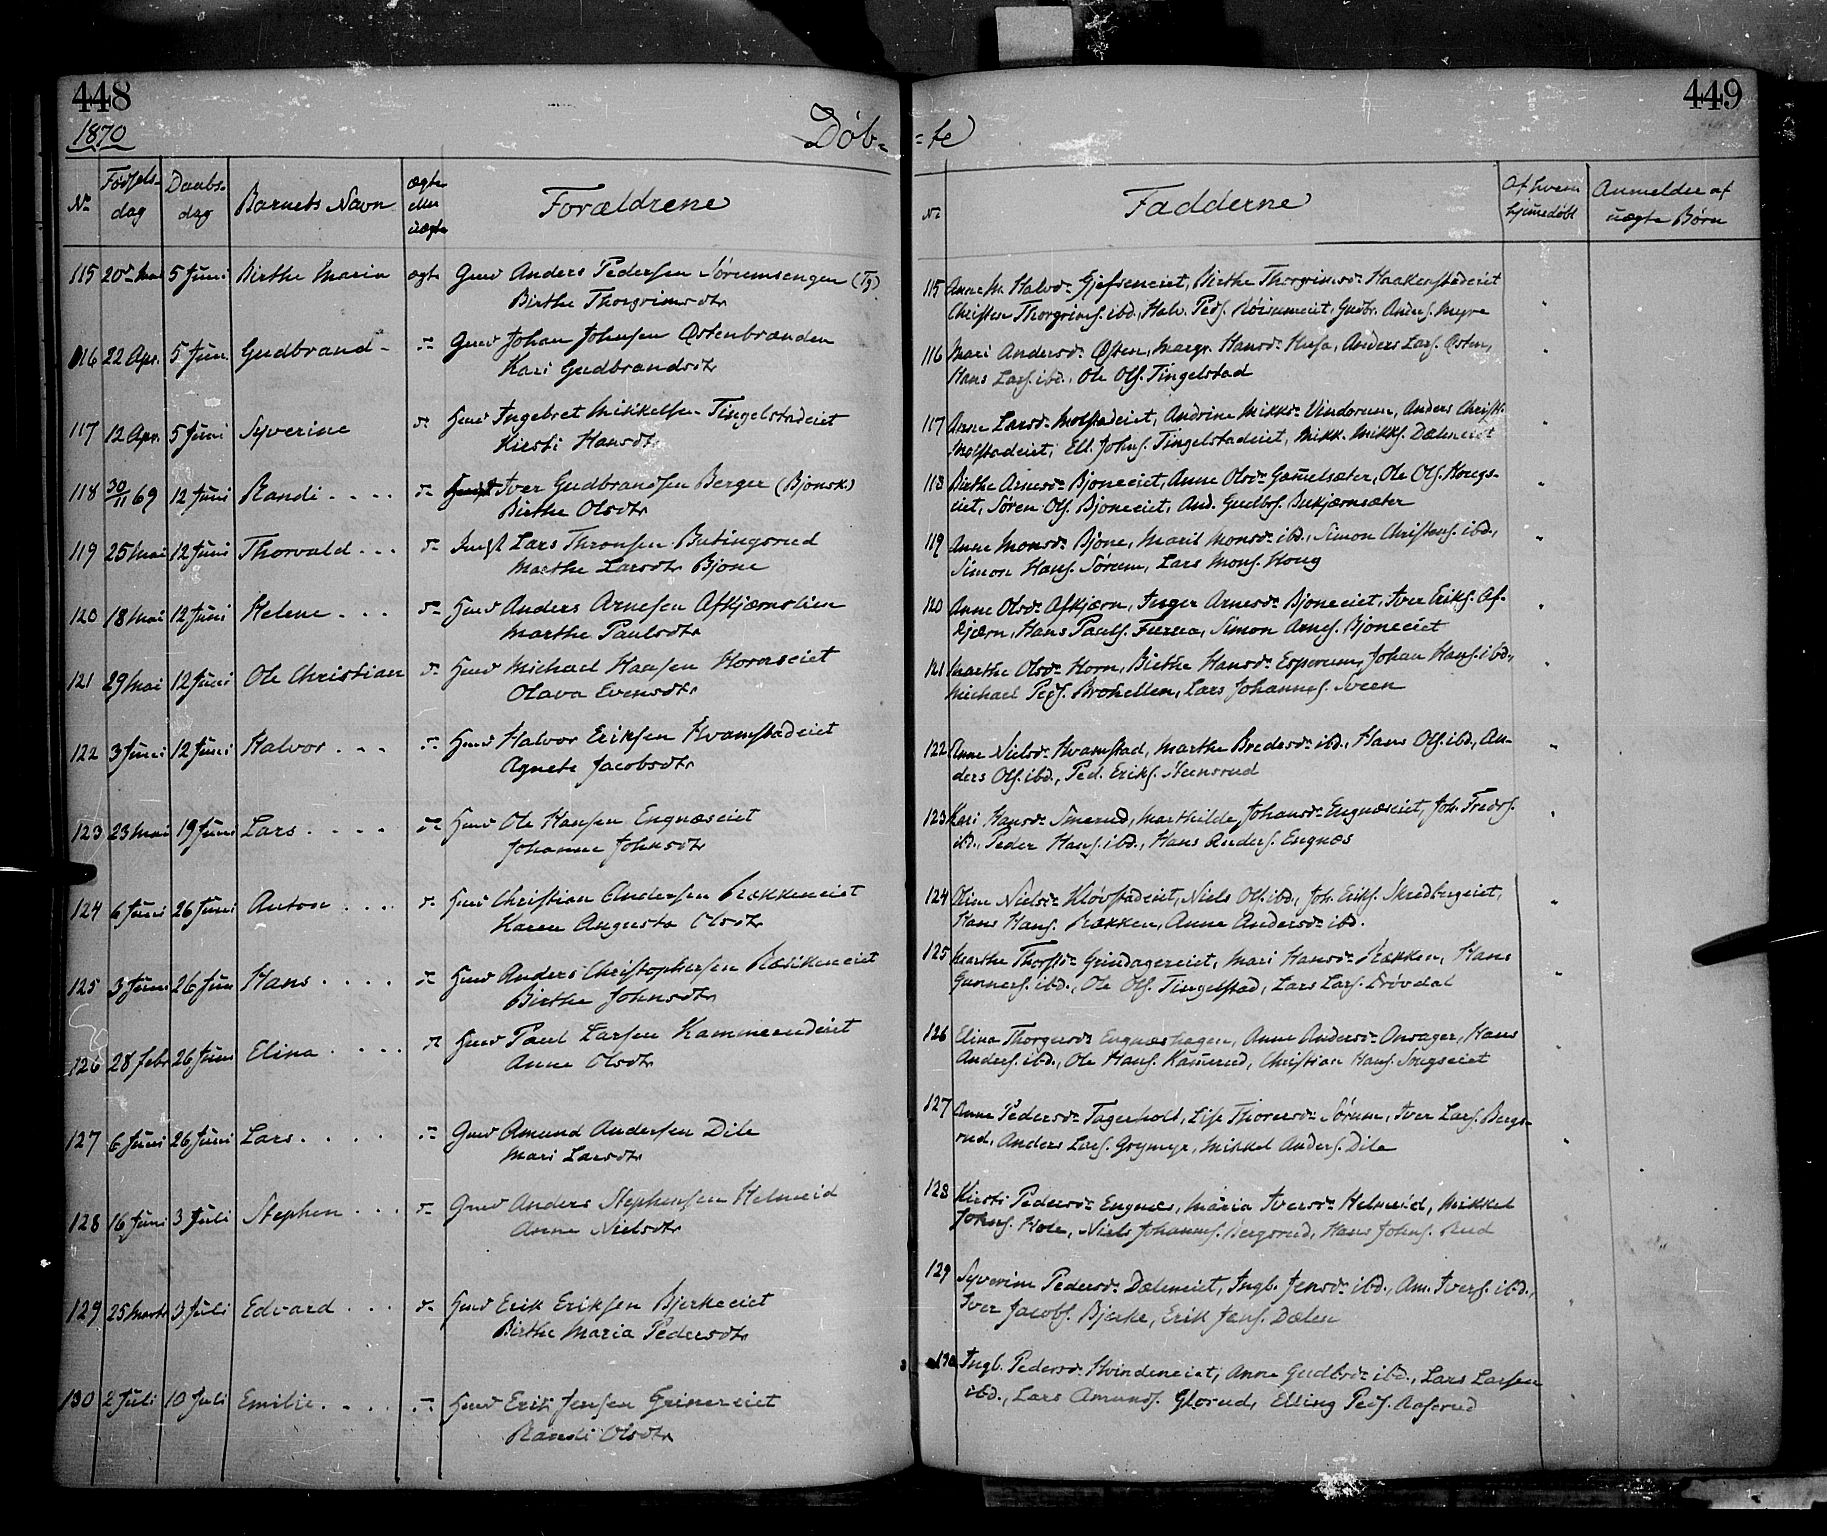 448
1870
Døb-
No
Fødsels-
dag
Daabs-
dag
Barnets Navn
ægte
eller
uægte
Forældrene
115 20de Mai 5 Juni Birthe Maria ægte Gmd Anders Pedersen Sørumsengen (Tg)
Birthe Thorgrimsdtr
116 22 Apr. 5 Jun. Gudbrand - Gmd Johan Johnsen Østenbrænden
Kari Gudbrandsdtr
117 12 Apr. 5 Juni Syverine Hmd Ingebret Mikkelsen Tingelstadeiet
Kirsti Hansdtr
118 30/11 69 12 Juni Randi . . . . Iver Gudbrandsen Berger (Bjonsk.)
Birthe Olsdtr
119 25 Mai 12 Juni Thorvald . . . Lars Thronsen Butingsrud
Marthe Larsdtr Bjone
120 18 Mai 12 Juni Helene . . . Hmd Anders Arnesen Afkjærnslien
Marthe Paulsdtr
121 29 Mai 12 Juni Ole Christian Hmd Michael Hansen Hornseiet
Olava Evensdtr
122 3 Juni 12 Juni Halvor . . . Hmd Halvor Eriksen Hvamstadeiet
Agnete Jacobsdtr
123 23 Mai 19 Juni Lars . . . . Hmd Ole Hansen Engnæseiet
Johanne Johnsdtr
124 6 Juni 26 Juni Anton . . . Hmd Christian Andersen Rækkeneiet
Karen Augusta Olsdtr
125 3 Juni 26 Jun Hans . . . . Hmd Anders Christophersen Rækkeneiet
Birthe Johnsdtr
126 28 Febr 26 Juni Elina . . . . Hmd Paul Larsen Kammerudeiet
Anne Olsdtr
127 6 Juni 26 Juni Lars . . . . Gmd Amund Andersen Dile
Mari Larsdtr
128 16 Juni 3 Juli Stephen . . . Gmd Anders Stephensen Helmeid
Anne Nielsdtr
129 25 Marts 3 Juli Edvard . . . Hmd Erik Eriksen Bjerkeeiet
Birthe Maria Pedersdtr
130 2 Juli 10 Juli Emilie . . . . Hmd Erik Jensen Grinereiet
Randi Olsdtr
449
=te
No
Fadderne
Af hvem
hjemedøbt
Anmelder af
uægte Børn
115 Anne M. Halvd. Gjefseneiet, Birthe Thorgrimsdr Haakenstadeiet
Christen Thorgrims. ibd., Halv. Peds. Røisumeiet, Gudbr. Anders. Myre
116 Mari Andersdr Østen, Margr. Hansdr Husa, Anders Lars. Østen,
Hans Lars. ibd., Ole Ols. Tingelstad
117 Anne Larsdr Molstadeiet, Andrine Mikksdr Vindorum, Anders Christ.
Molstadeiet, Ell. Johns. Tingelstadeiet, Mikk. Mikks. Dæleneiet
118 Birthe Arnesdr Bjoneeiet, Anne Olsdr Gamelsæter, Ole Ols. Hougs-
eiet, Søren Ols. Bjoneeiet, And. Gudbs.
119 Anne Monsdr Bjone, Marit Monsdr ibd., Simon Christens. ibd.,
Simon Hans. Sørum, Lars Mons. Houg
120 Anne Olsdr Afkjærn, Inger Arnesdr Bjoneeiet, Iver Eriks. Af-
kjærn, Hans Pauls. Simon Arnes. Bjoneeiet
121 Marthe Olsdr Horn, Birthe Hansdr Esperum, Johan Hans. ibd.,
Michael Peds. Brohellen, Lars Johannes. Sveen
122 Anne Nielsdr Hvamstad, Marthe Bredesdr ibd., Hans Ols. ibd., An-
ders Ols. ibd., Ped. Eriks. Steensrud
123 Kari Hansdr Smerud, Marthilde Johansdr Engnæseiet, Joh. Freds.
ibd., Peder Hans. ibd., Hans Anders. Engnæs
124 Oline Nielsdr Kløvstadeiet, Niels Ols. ibd., Joh. Eriks. Skredbergeiet,
Hans Hans. Rækken, Anne Andersdr ibd.
125 Marthe Thorstdr Grindagereiet, Mari Hansdr Rækken, Hans
Gunners. ibd., Ole Ols. Tingelstad, Lars Lars. Drøvdal
126 Elina Thorgersdr Engnæshagen, Anne Andersdr Onsager, Hans
Anders. ibd., Ole Hans. Kamerud, Christian Hans. Sougseiet
127 Anne Pedersdr Fagerholt, Lise Thoresdr Sørum, Iver Lars. Bergs-
rud, Anders Lars. Grymyr, Mikkel Anders. Dile
128 Kirsti Pedersdr Engnæs, Maria Iversdr Helmeid, Mikkel
Johns. Hole, Niels Johannes. Bergsrud, Hans Johns. Rud
129 Syverine Pedersdr Dæleneiet, Ingb. Jensdr ibd., Am. Ivers. ibd.,
Iver Jacobs. Bjerke, Erik Jans. Dælen
130 Ingb. Pedersdr Hvindeneiet, Anne Gudbsdr ibd., Lars Larsen
ibd., Lars Amunds. Glorud, Elling Peds. Aaserud